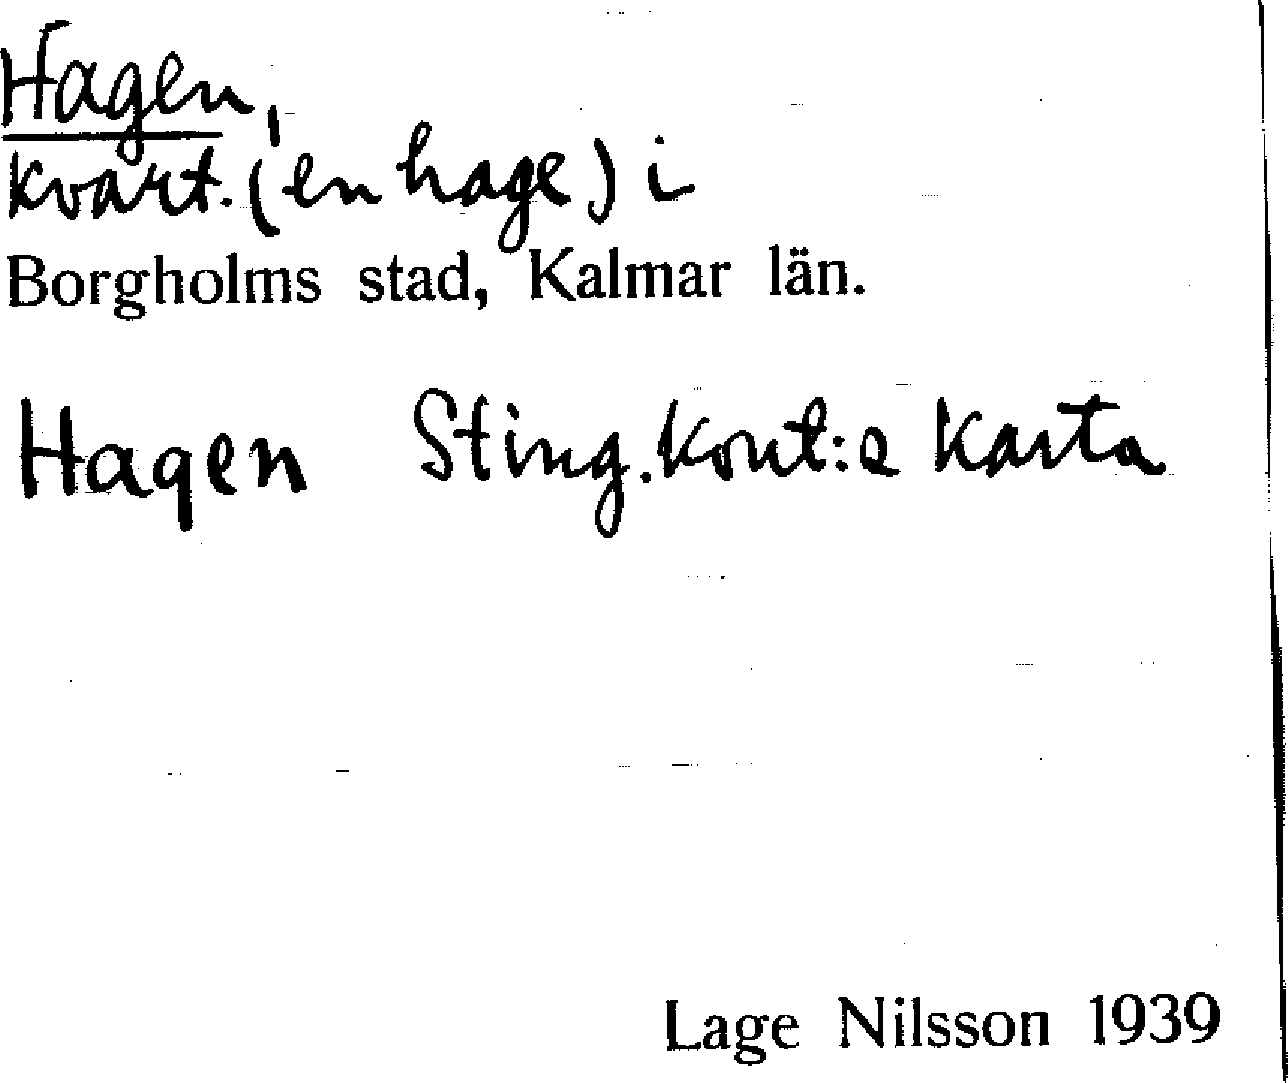 Hagen,
kvart. (en hage) i
Borgholms stad, Kalmar län.
Hagen Sting. kont:s karta
Lage Nilsson 1939